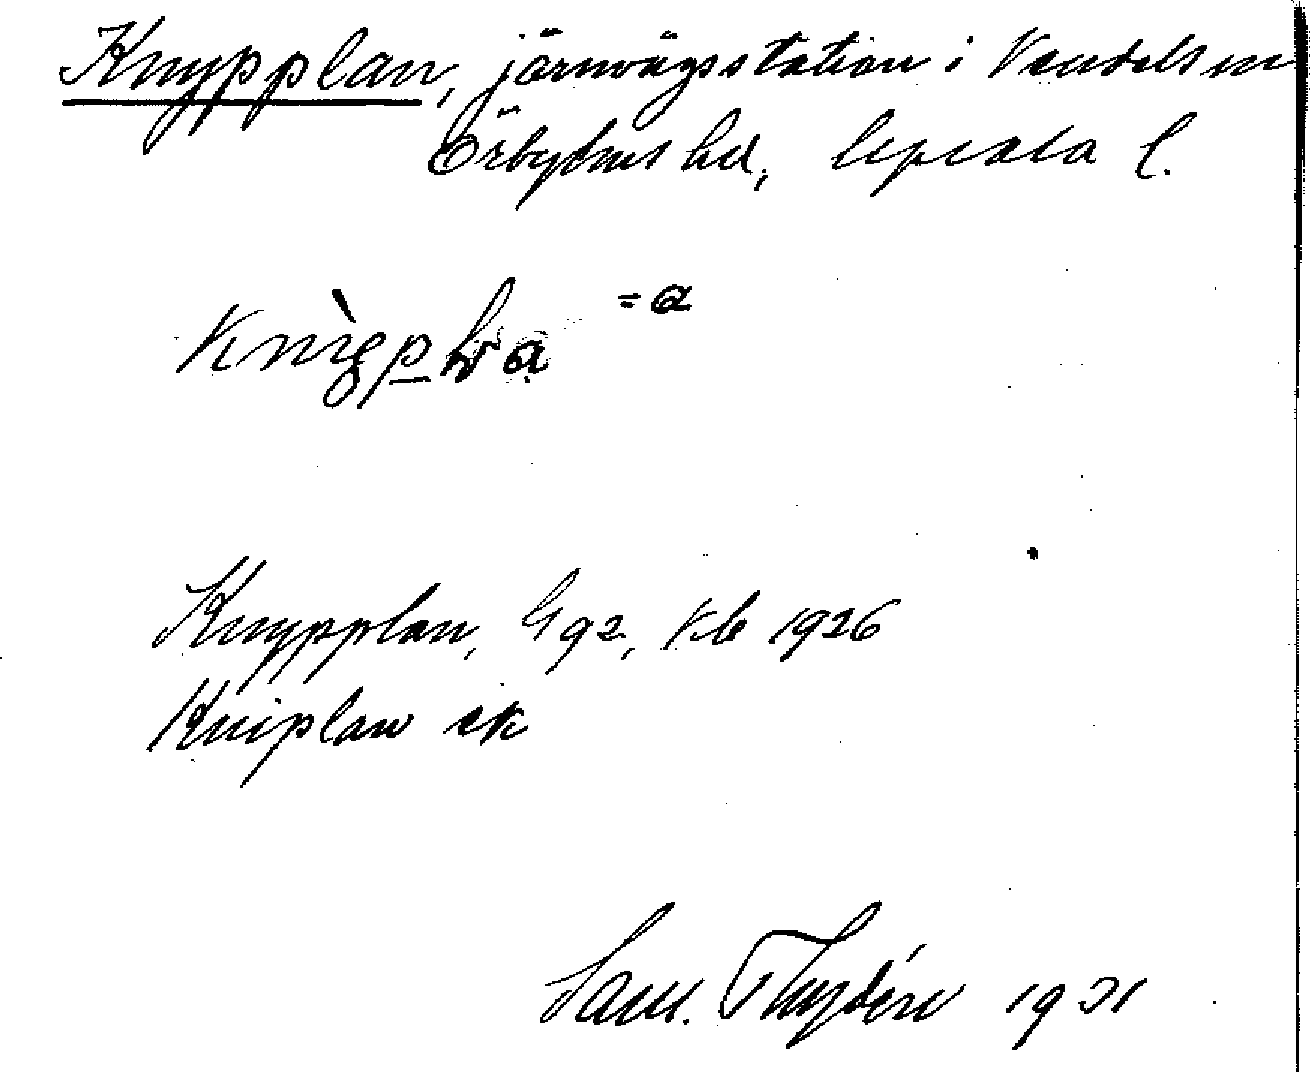 Knypplan, järnvägsstation i Vendels sn
Örbyhus hd, Uppsala l.
= a
Knypplan, Kb 1926
Kniplan ek
Sam. Thydén 1931